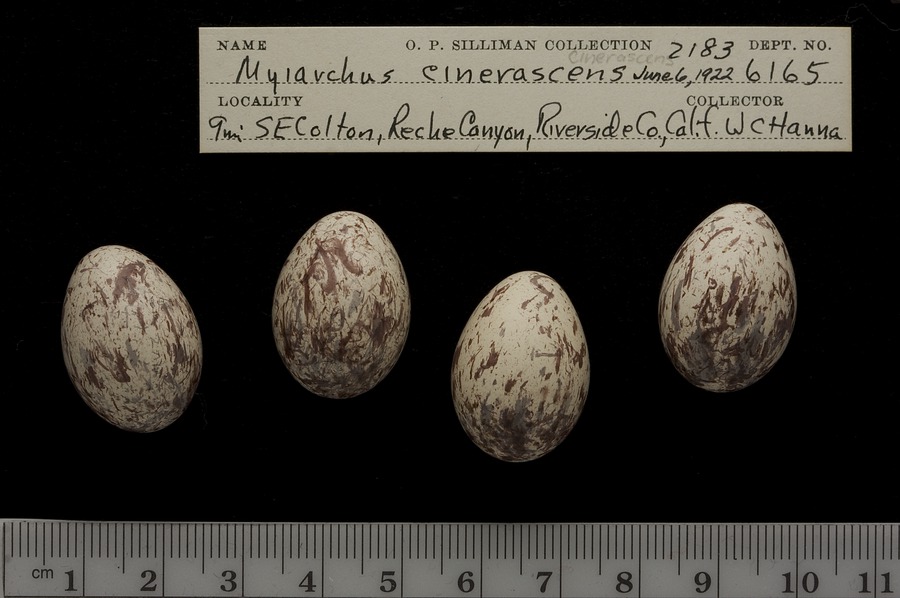 NAME O. P. SILLIMAN COLLECTION 2183 DEPT. NO.
cinerascens
Myiarchus cinerascens June 6, 1922 6165
LOCALITY COLLECTOR
9mi SE Colton, Reche Canyon, Riverside Co., Calif. W C Hanna
cm 1 2 3 4 5 6 7 8 9 10 11